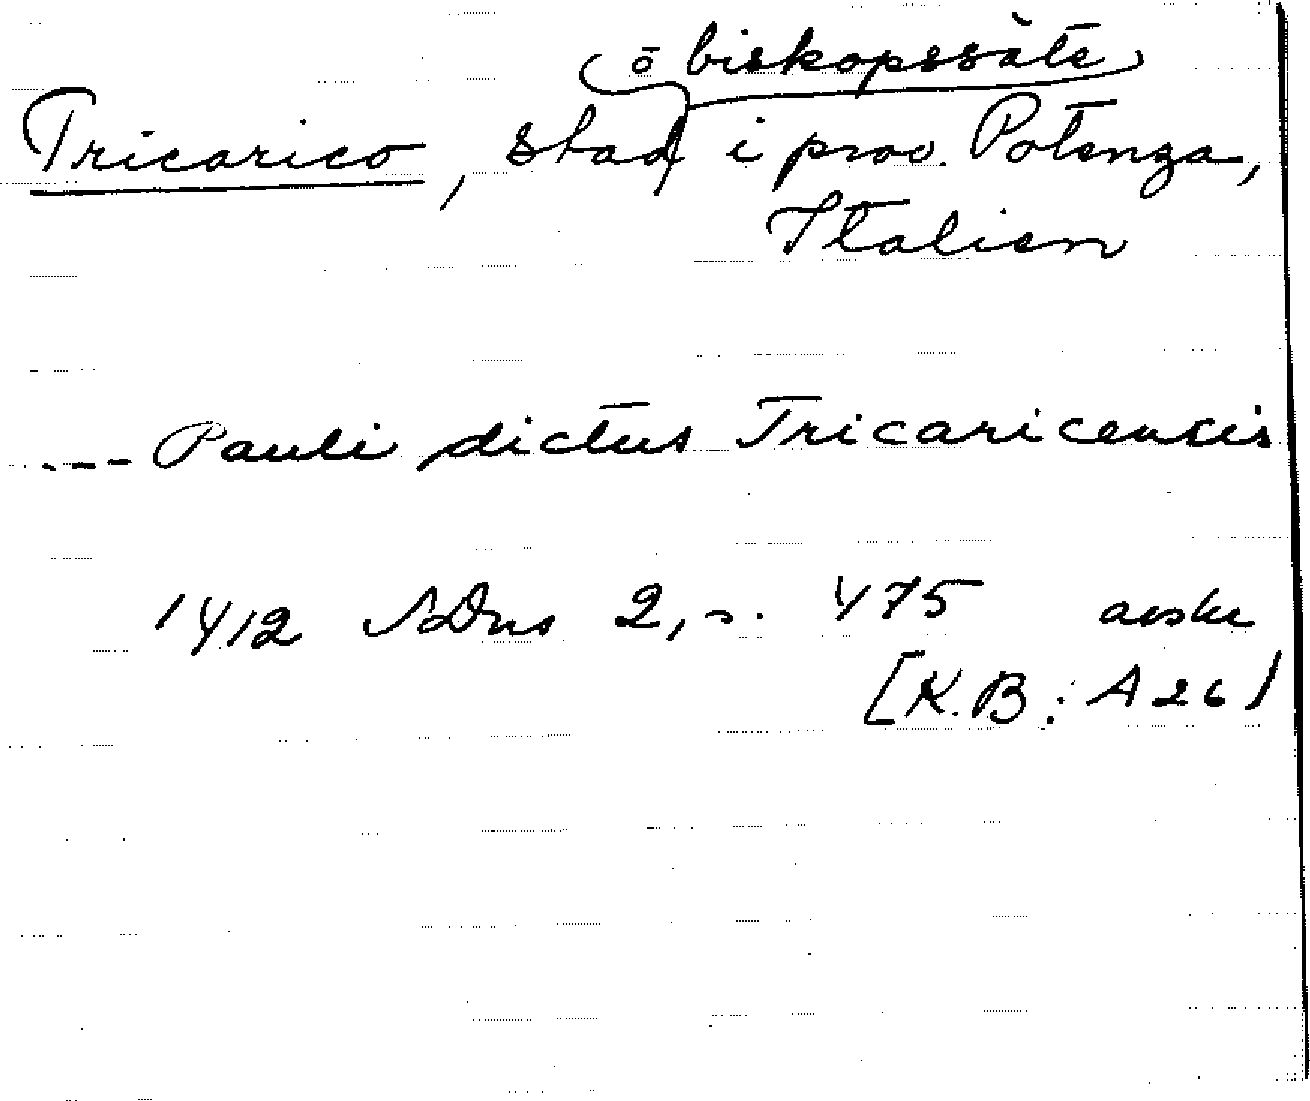 ō biskopssäte
Tricarico, stad i prov. Potenza,
Italien
---- Pauli dictus Tricaricensis
1412 SDns 2, s. 475 avskr
[K.B.: A 26]